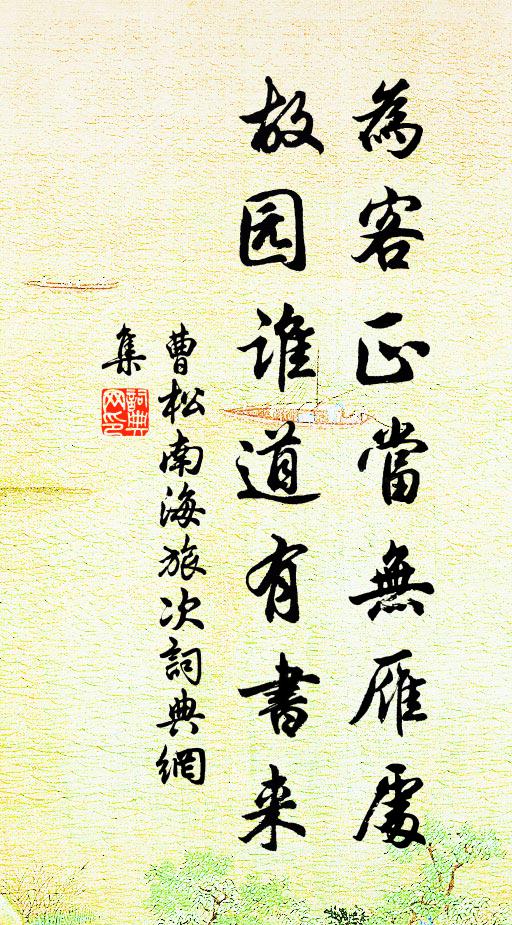 為客正當無雁處
故园誰道有書来
曹松南海旅次詞典網
集
詞典
网印